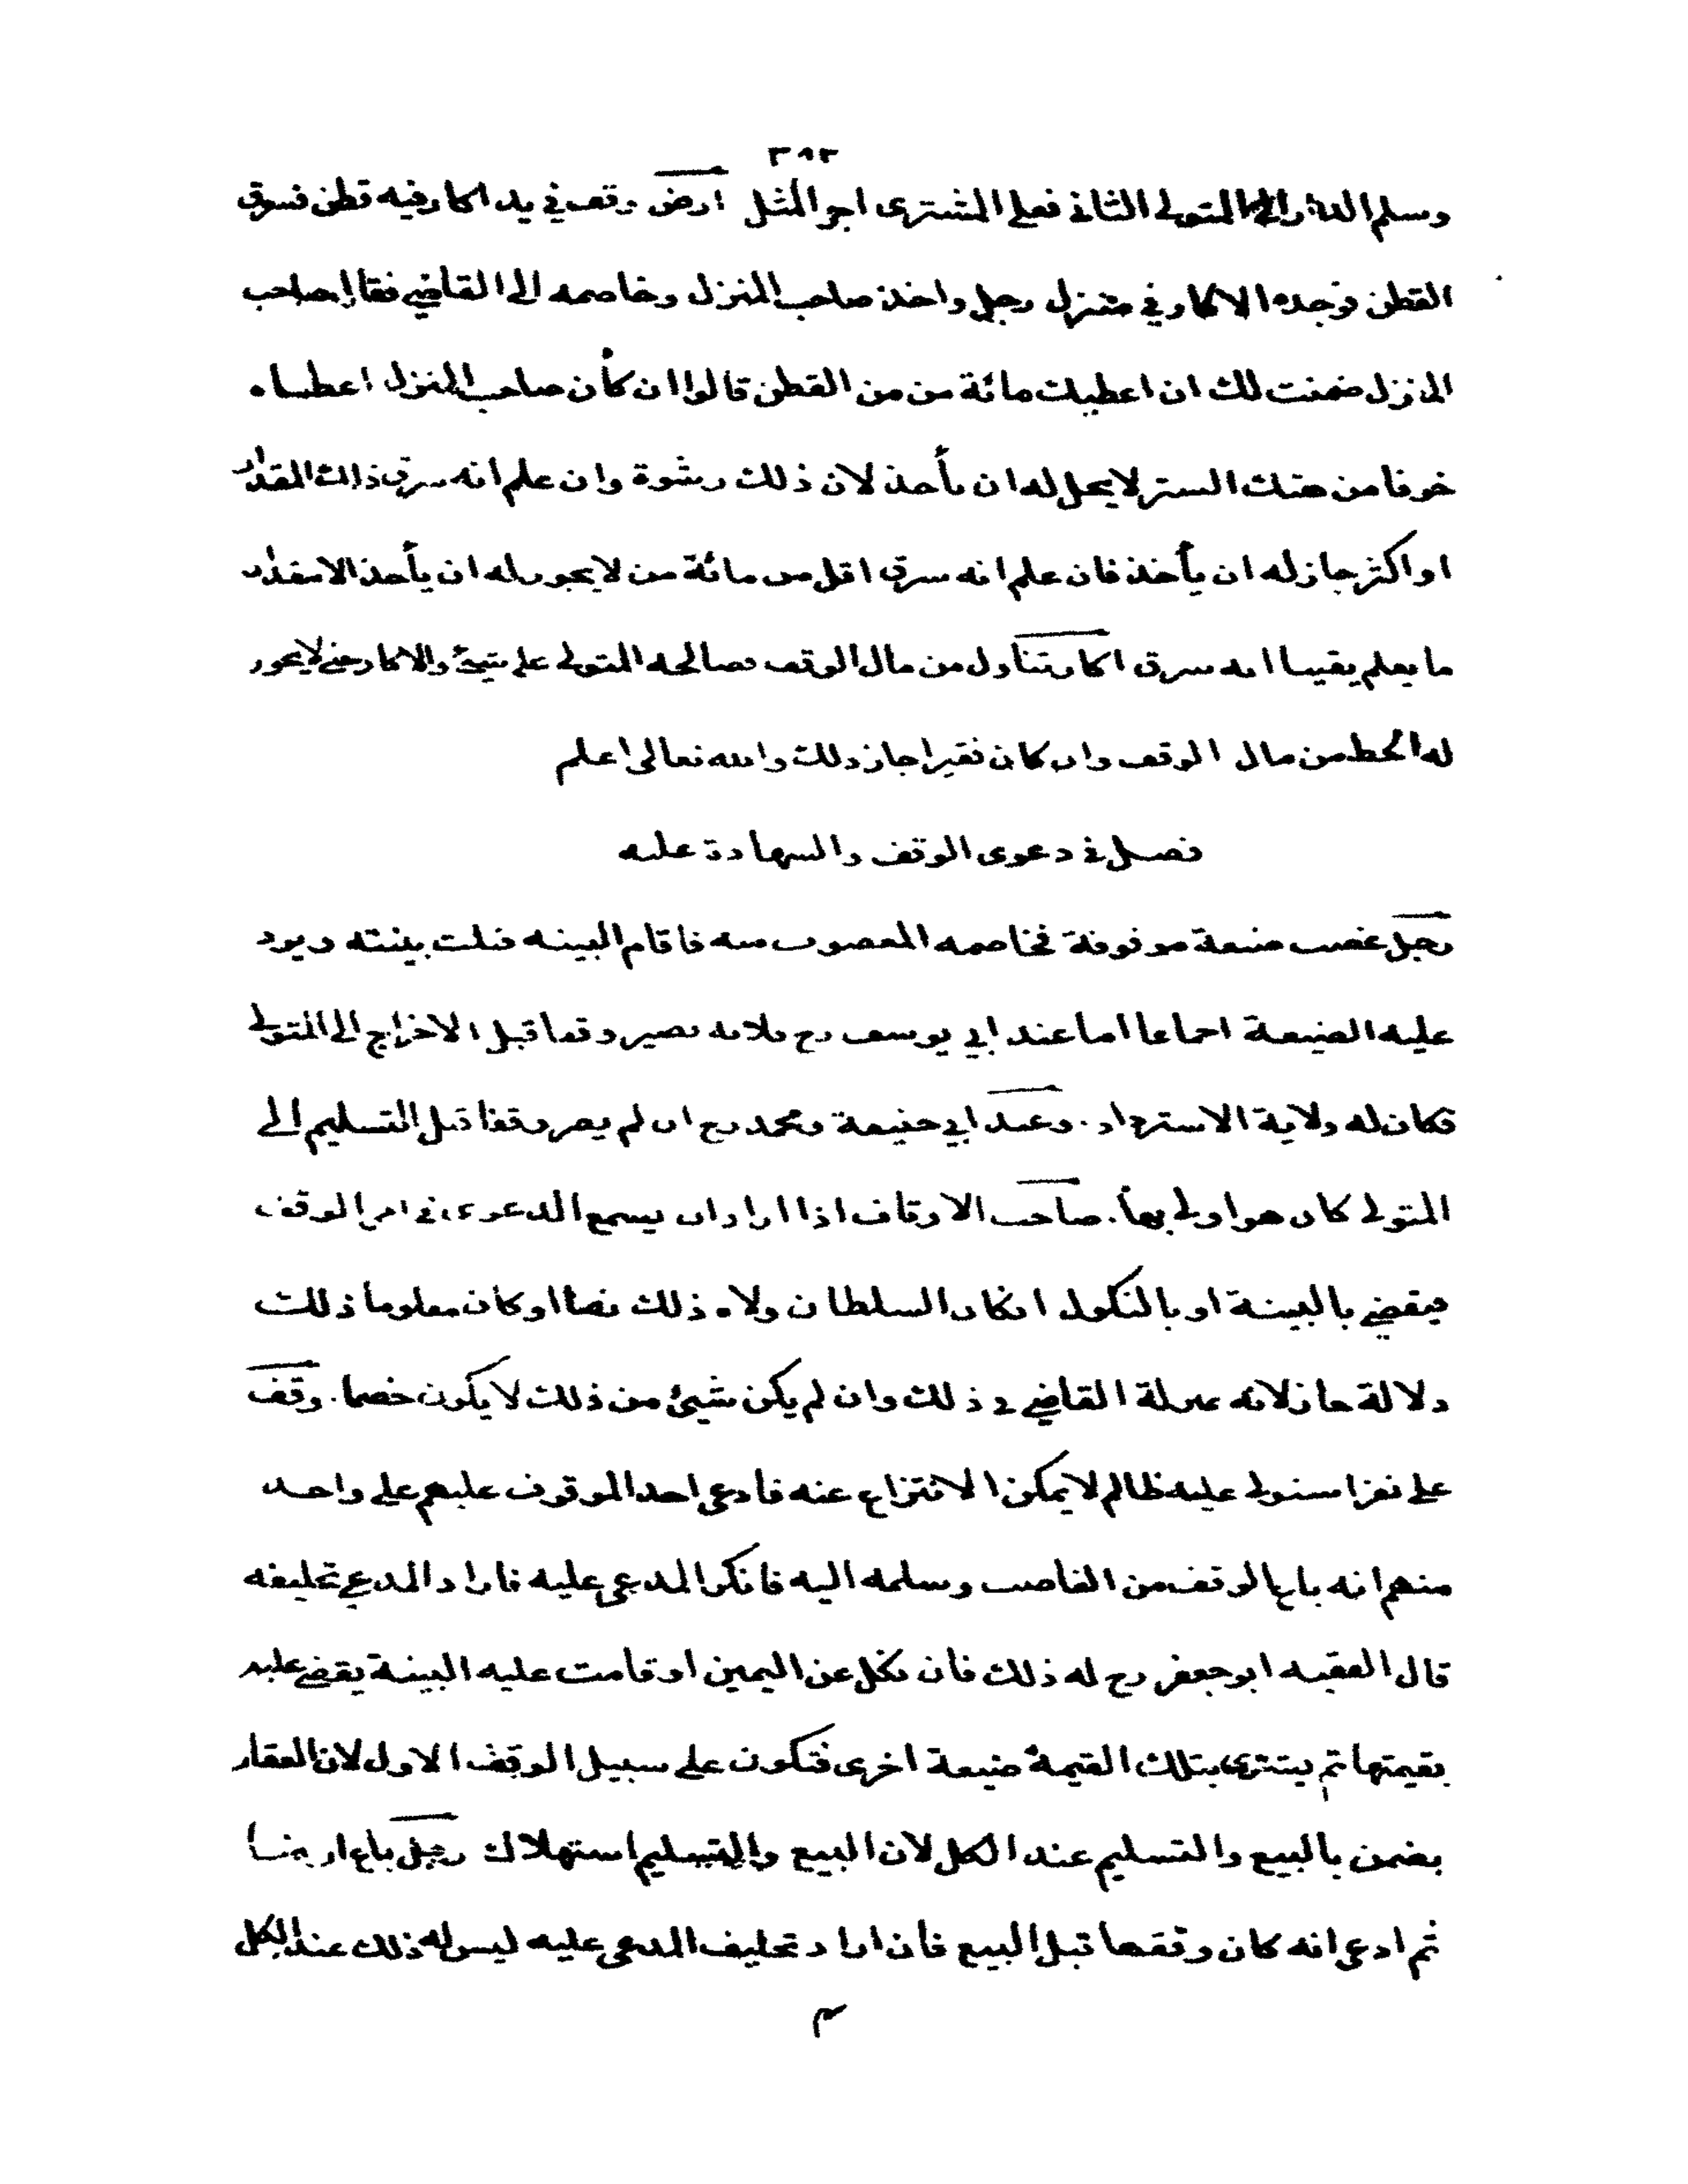 ٣٩٣
وسلم الدار الى المتولي الثاني فعلى المشترى اجر المثل ارض وقف في يد اكار فيه قطن فسرق
القطن فوجده الاكار في منزل رجل واخذ صاحب المنزل وخاصمه الى القاضي فقال صاحب
المنزل ضمنت لك ان اعطيك مائة من من القطن قالوا ان كان صاحب المنزل اعطاه
خوفا من هتك الستر لا يحل له ان يأخذ لان ذلك رشوة وان علم انه سرق ذلك المقدار
او اكثر جاز له ان يأخذ فان علم انه سرق اقل من مائة من لا يجوز له ان يأخذ الا مقدار
ما يعلم يقينا انه سرق اكار تناول من مال الوقف فصالحه المتولي على شيئ والاكار غني لا يجوز
له الحط من مال الوقف وان كان فقيرا جاز ذلك والله تعالى اعلم
فصل في دعوى الوقف والشهادة عليه
رجل غصب ضيعة موقوفة فخاصمه المغصوب منه فاقام البينه قبلت بينته ويرد
عليه الضيعة اجماعا اما عند ابي يوسف رح فلانه تصير وقفا قبل الاخراج الى المتولي
فكان له ولاية الاسترداد. وعند ابي حنيفة ومحمد رح ان لم يصر وقفا قبل التسليم الى
المتولي كان هو اولى بها. صاحب الاوقاف اذا اراد ان يسمع الدعوى في امر الوقف
فيقضي بالبينة او بالنكول ان كان السلطان ولاه ذلك نصا او كان معلوما ذلك
دلالة جاز لانه بمنزلة القاضي في ذلك وان لم يكن شيئ من ذلك لا يكون خصما. وقف
على نفر استولى عليه ظالم لا يمكن الانتزاع عنه فادعى احد الموقوف عليهم على واحد
منهم انه باع الوقف من الغاصب وسلمه اليه فانكر المدعى عليه فاراد المدعي تحليفه
قال الفقيه ابو جعفر رح له ذلك فان نكل عن اليمين او قامت عليه البينة يقضى عليه
بقيمتها ثم يشترى بتلك القيمة ضيعة اخرى فتكون على سبيل الوقف الاول لان العقار
يضمن بالبيع والتسليم عند الكل لان البيع والتسليم استهلاك رجل باع ارضا
ثم ادعى انه كان وقفها قبل البيع فان اراد تحليف المدعى عليه ليس له ذلك عند الكل